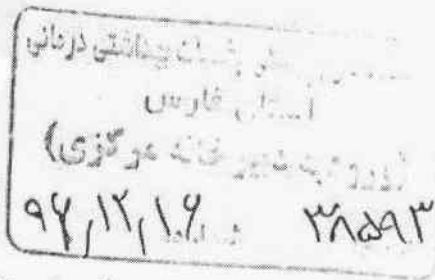 خدمات بهداشتی درمانی
استان فارس
(ورود به دبیرخانه مرکزی)
۳۸۵۹۳ شماره ۹۶/۱۲/۱۶